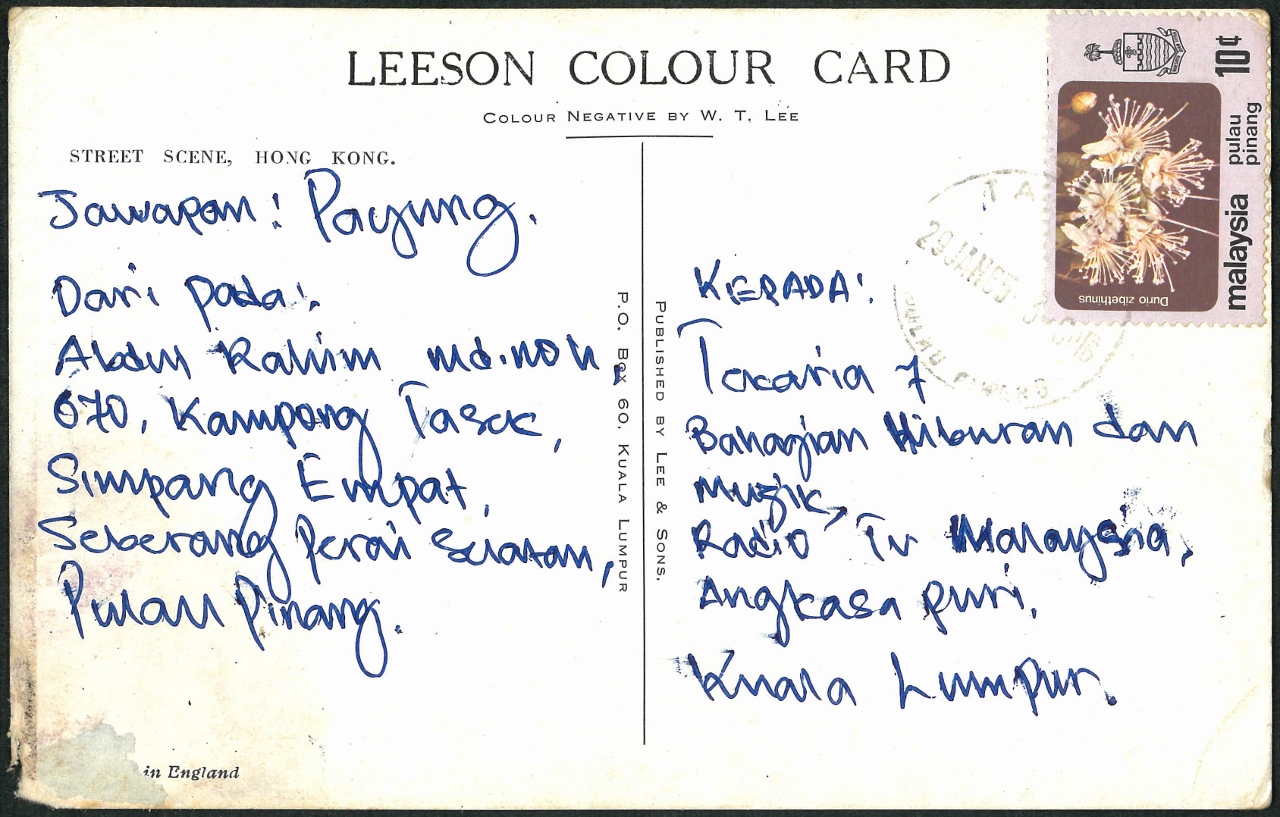 LEESON COLOUR CARD
COLOUR NEGATIVE BY W. T. LEE
STREET SCENE, HONG KONG.
Jawapan: Payung.
Dari pada:
Abdul Rahim Md. Noh,
670, Kampong Tasek,
Simpang Empat,
Seberang Perai Selatan,
Pulau Pinang.
in England
P.O. BOX 60, KUALA LUMPUR
PUBLISHED BY LEE & SONS.
10¢
pulau
pinang
malaysia
Durio zibethinus
29JAN85
KEPADA:
7
Bahagian Hiburan dan
Muzik,
Radio Tv Malaysia,
Angkasa puri,
Kuala Lumpur.